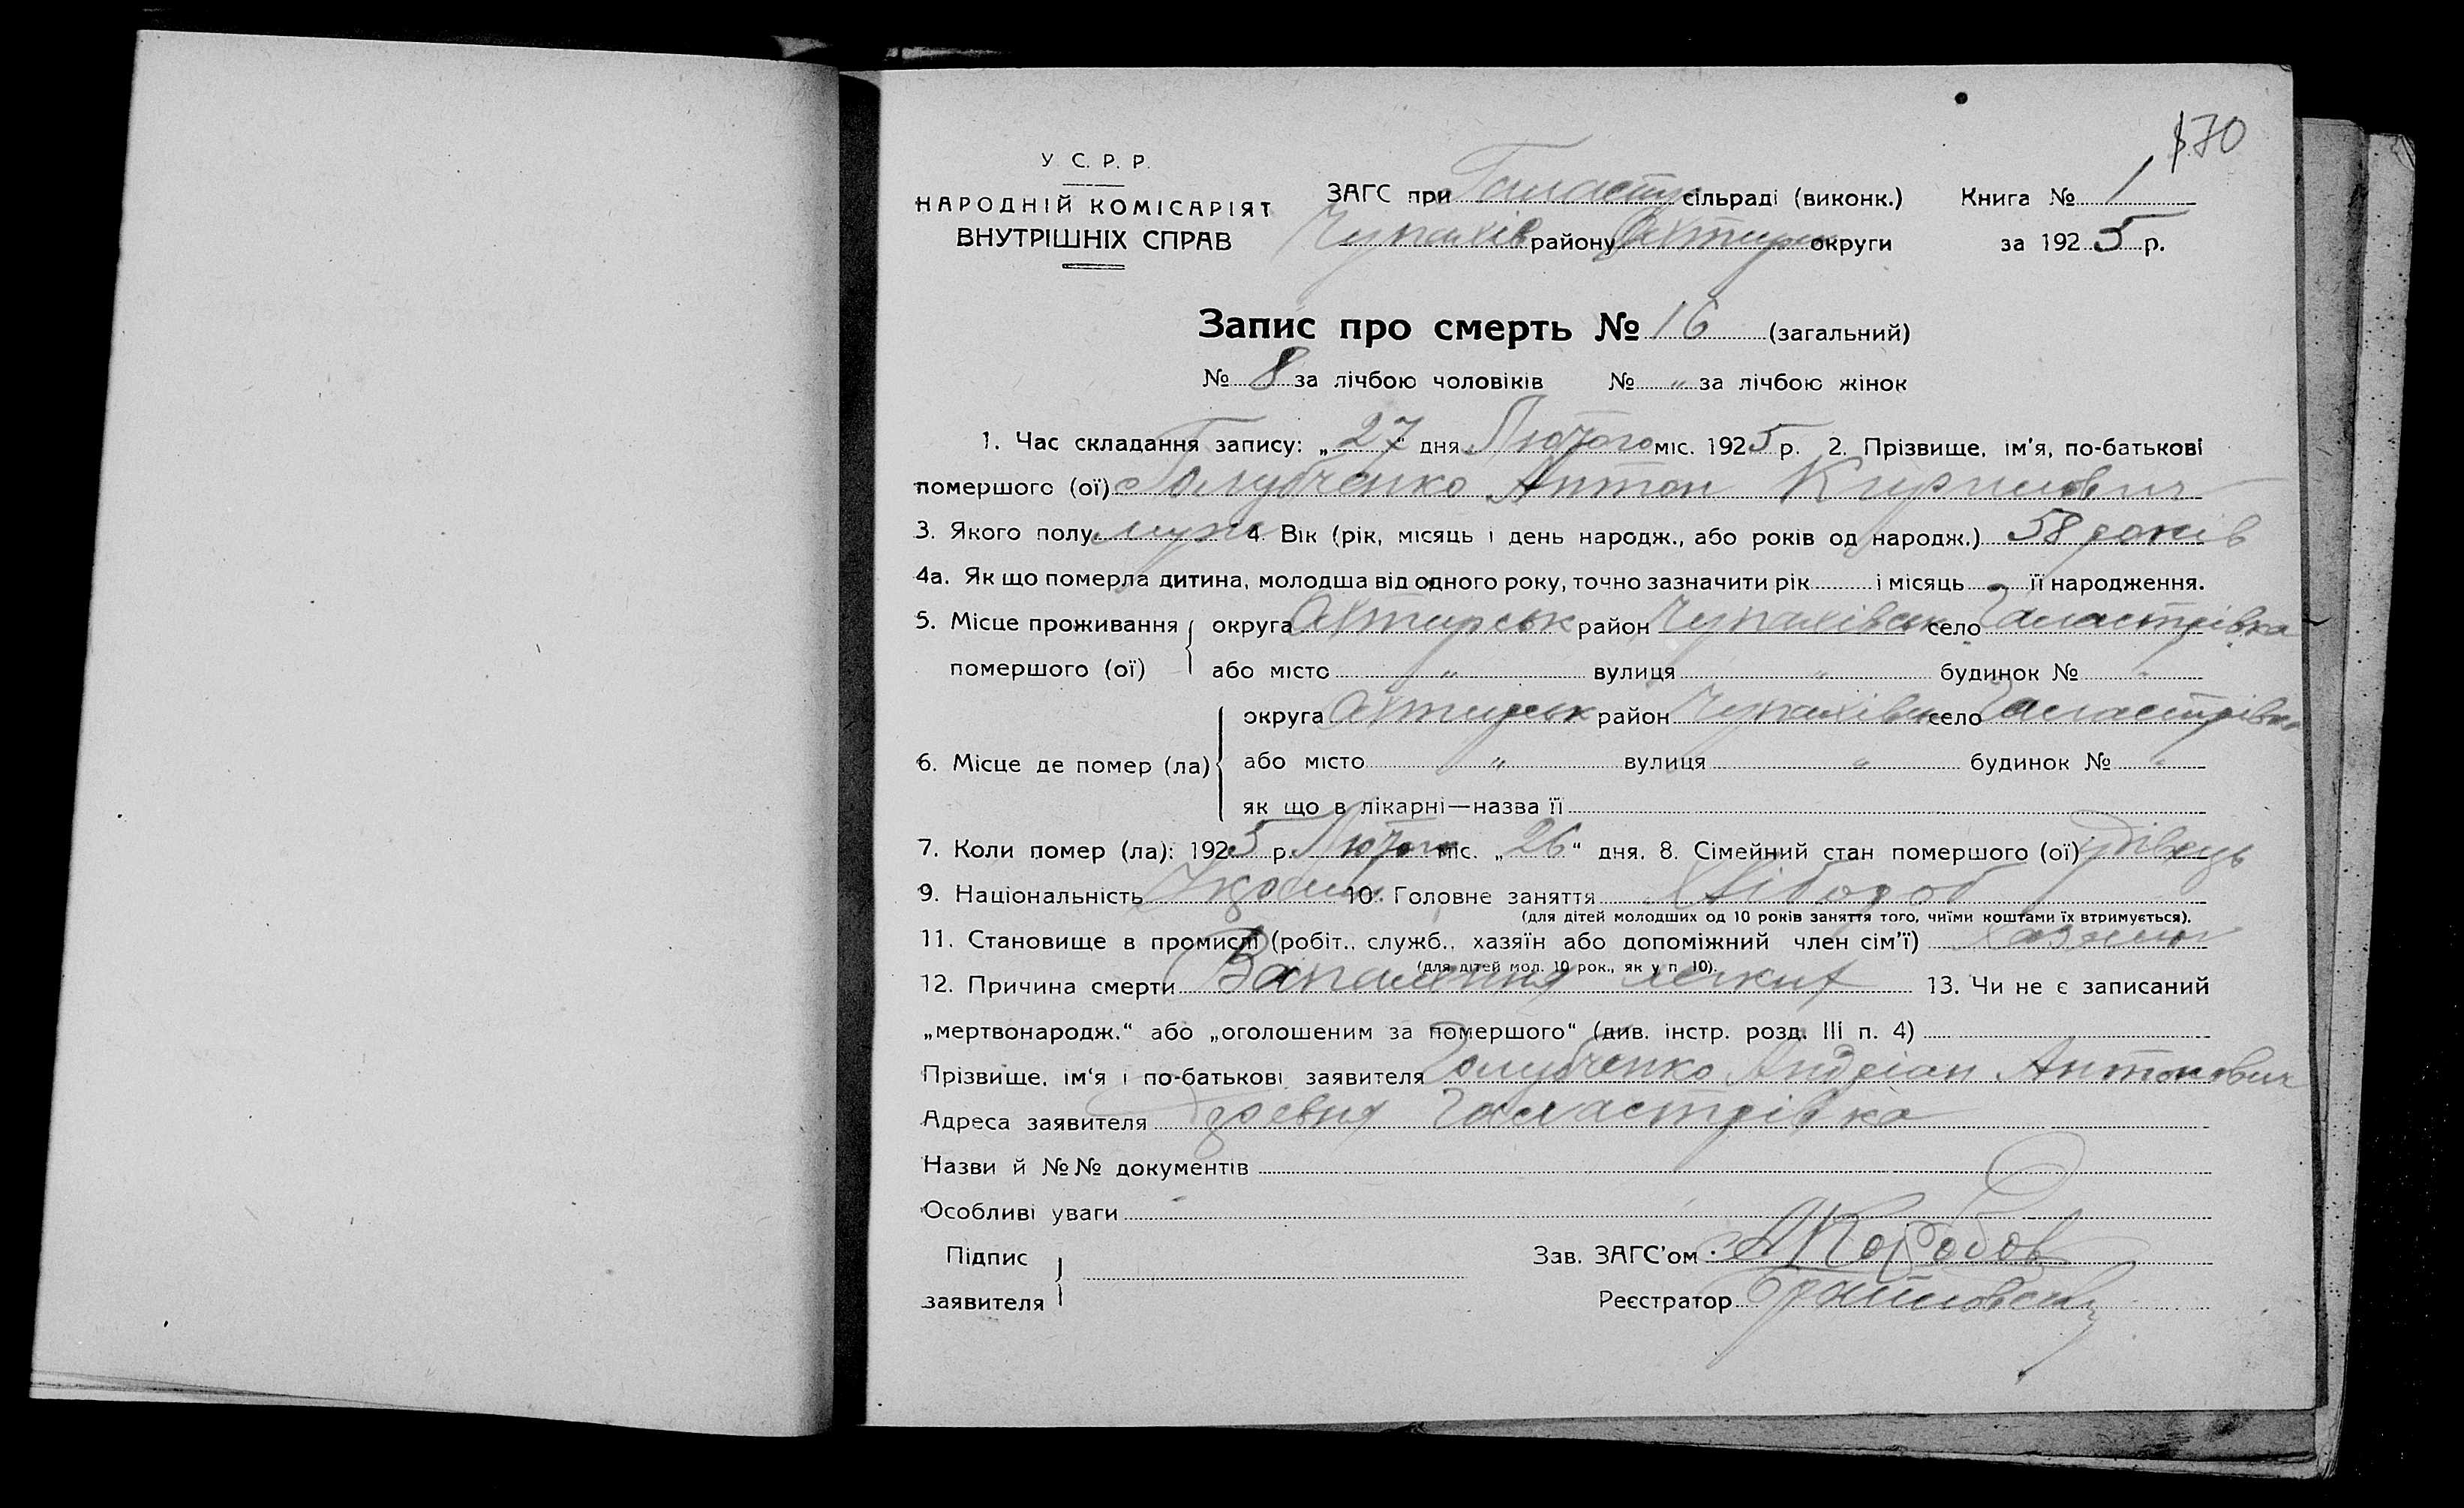 170
У. С. Р. Р.
НАРОДНІЙ КОМІСАРІЯТ
ВНУТРІШНІХ СПРАВ
ЗАГС при сільраді (виконк.) Книга № 1
Чупахів району Охтирськ округи за 1925 р.
Запис про смерть № 16 (загальний)
№ 8 за лічбою чоловіків № " за лічбою жінок
1. Час складання запису: „27" дня Лютого міс. 1925 р. 2. Прізвище, ім'я, по-батькові
помершого (ої) Голубченко Антон Кирилович
3. Якого полу муж 4. Вік (рік, місяць і день народж., або років од народж.) 58 років
4а. Як що померла дитина, молодша від одного року, точно зазначити рік і місяць - її народження.
5. Місце проживання округа Охтирськ район Чупахівськ село Галастрівка
помершого (ої) або місто " вулиця " будинок № "
округа Охтирськ район Чупахівськ село Галастрівка
6. Місце де помер (ла) або місто " вулиця " будинок № "
як що в лікарні—назва її
7. Коли помер (ла): 1925 р. Лютого міс. „26" дня. 8. Сімейний стан помершого (ої) удівець
9. Національність 10. Головне заняття Хлібороб
(для дітей молодших од 10 років заняття того, чиїми коштами їх втримується).
11. Становище в промислі (робіт., служб., хазяїн або допоміжний член сім'ї) Хазяїн
(для дітей мол. 10 рок., як у п. 10).
12. Причина смерти Запалення легких 13. Чи не є записаний
„мертвонародж." або „оголошеним за помершого" (див. інстр. розд. III п. 4)
Прізвище, ім'я і по-батькові заявителя Голубченко Андріан Антонович
Адреса заявителя Галастрівка
Назви й №№ документів
Особливі уваги
Підпис
заявителя
Зав. ЗАГС'ом
Реєстратор